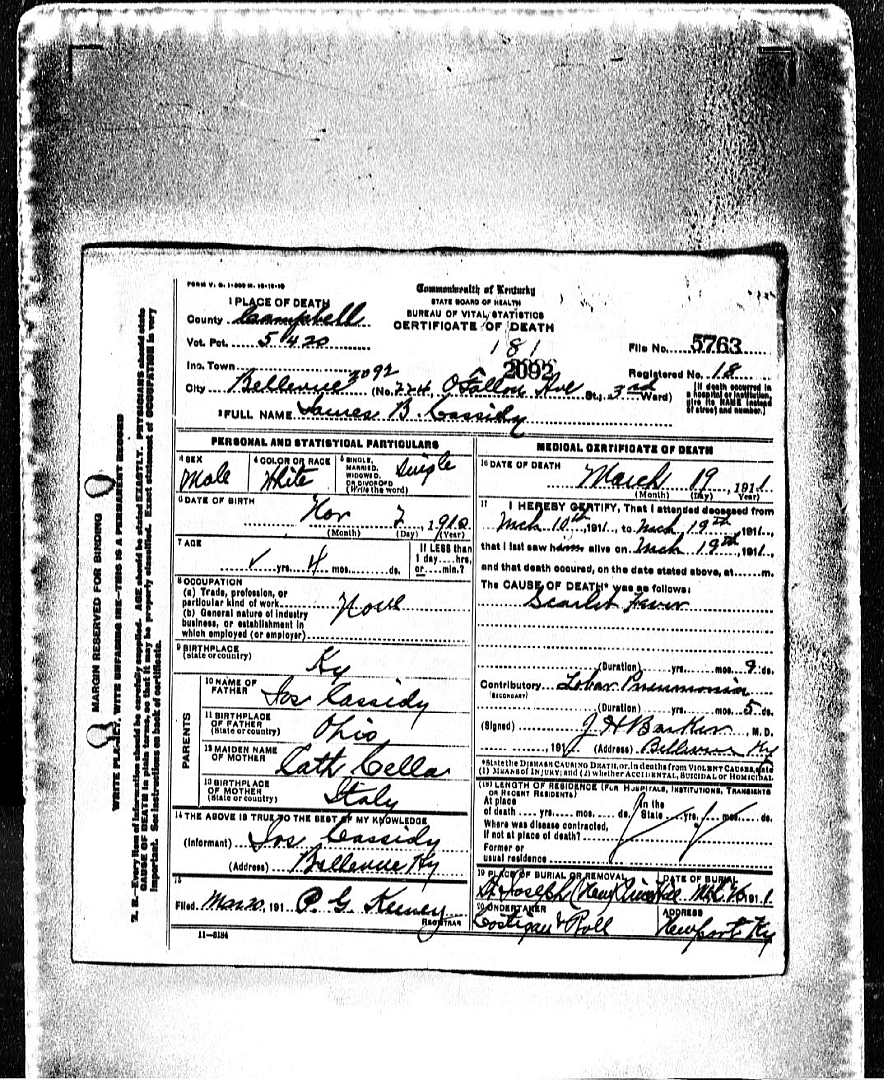 FORM V. S. 1-
Commonwealth of Kentucky
STATE BOARD OF HEALTH
BUREAU OF VITAL STATISTICS
CERTIFICATE OF DEATH
1 PLACE OF DEATH
County Campbell
Vot. Pct. 5420
Inc. Town
City Bellevue 2092 (No. 224, O'Fallon Ave St., 3rd Ward)
181
2092
File No. 5763
Registered No. 18
[If death occurred in a hospital or institution, give its NAME instead of street and number.]
2 FULL NAME James B Cassidy
PERSONAL AND STATISTICAL PARTICULARS
3 SEX Male
4 COLOR OR RACE White
5 SINGLE, MARRIED, WIDOWED, OR DIVORCED (Write the word) Single
6 DATE OF BIRTH Nov 7, 1910
(Month) (Day) (Year)
7 AGE yrs. 4 mos. ds.
If LESS than 1 day hrs. or min.?
8 OCCUPATION
(a) Trade, profession, or particular kind of work None
(b) General nature of industry business, or establishment in which employed (or employer)
9 BIRTHPLACE (State or country) Ky
PARENTS
10 NAME OF FATHER Jos Cassidy
11 BIRTHPLACE OF FATHER (State or country) Ohio
12 MAIDEN NAME OF MOTHER Cath Cella
13 BIRTHPLACE OF MOTHER (State or country) Italy
14 THE ABOVE IS TRUE TO THE BEST OF MY KNOWLEDGE
(Informant) Jos Cassidy
(Address) Bellevue Ky
15
Filed Mar 20, 191 P. G.
REGISTRAR
11-3184
MEDICAL CERTIFICATE OF DEATH
16 DATE OF DEATH March 19, 1911
(Month) (Day) (Year)
17 I HEREBY CERTIFY, That I attended deceased from
Mch 10th, 1911, to Mch 19th, 1911,
that I last saw him alive on Mch 19th, 1911,
and that death occured, on the date stated above, at m.
The CAUSE OF DEATH* was as follows:
Scarlet Fever
(Duration) yrs. mos. 9 ds.
Contributory Lobar Pneumonia
(SECONDARY)
(Duration) yrs. mos. 5 ds.
(Signed) J H Barker, M. D.
, 191 (Address) Bellevue Ky
*State the DISEASE CAUSING DEATH, or, in deaths from VIOLENT CAUSES, state
(1) MEANS OF INJURY; and (2) whether ACCIDENTAL, SUICIDAL or HOMICIDAL
(18) LENGTH OF RESIDENCE (FOR HOSPITALS, INSTITUTIONS, TRANSIENTS OR RECENT RESIDENTS)
At place of death yrs. mos. ds. In the State yrs. mos. ds.
Where was disease contracted,
If not at place of death?
Former or usual residence
19 PLACE OF BURIAL OR REMOVAL St Joseph (New)
DATE OF BURIAL 1911
20 UNDERTAKER Costigan & Roll
ADDRESS Newport Ky
MARGIN RESERVED FOR BINDING
WRITE PLAINLY, WITH UNFADING INK—THIS IS A PERMANENT RECORD
N. B.—Every item of information should be carefully supplied. AGE should be stated EXACTLY. PHYSICIANS should state
CAUSE OF DEATH in plain terms, so that it may be properly classified. Exact statement of OCCUPATION is very
important. See instructions on back of certificate.